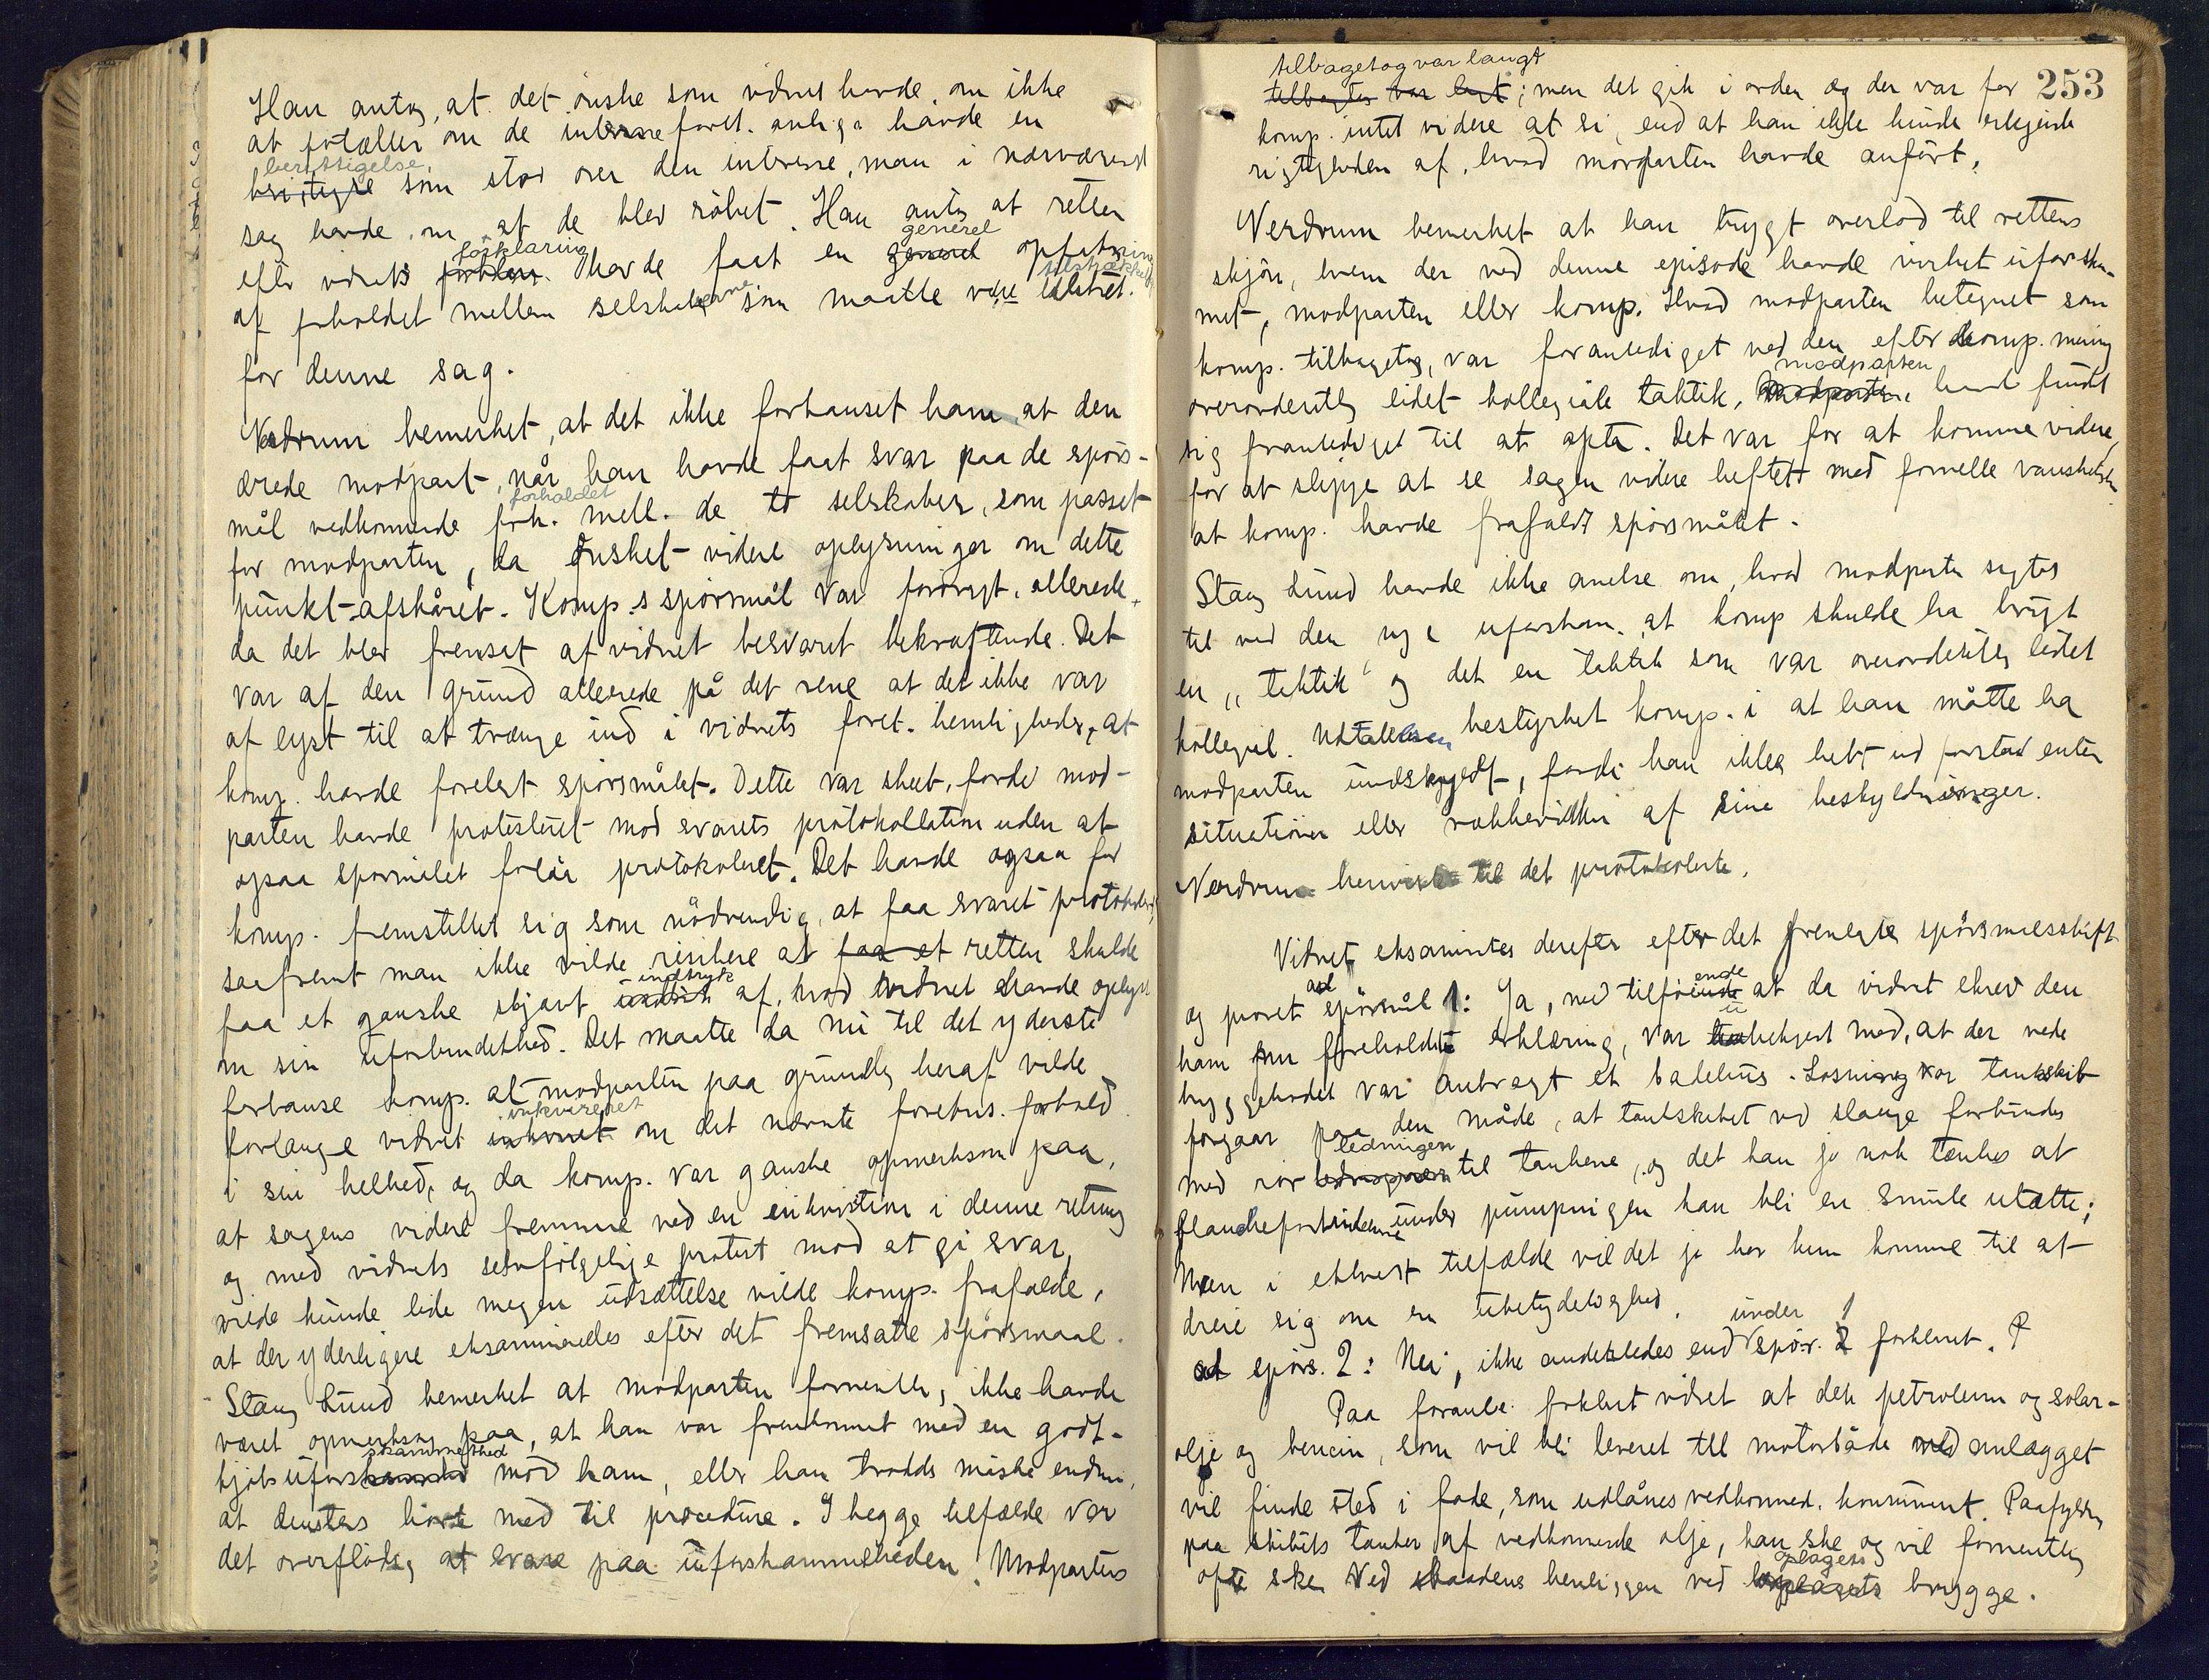 Han antog, at det ønske som vidnet havde, om ikke
at fortælle om de interne foret. anligg. havde en
berettigelse
som stod over den interesse, man i nærværende
sag havde om at de blev røbet. Han antog at retten
forklaring generel
efter vidnets havde faat en opfatning
tilstrækkelig
af forholdet mellem selskaberne som maatte være
for denne sag.
Nerdrum bemerket, at det ikke forbauset ham at den
ærede modpart, når han havde faat svar paa de spørs-
forholdet
mål vedkommende forh. mell. de to selskaber, som passet
for modparten, da ønsket videre oplysninger om dette
punkt afskåret. Komp.s spørsmål var forøvrigt, allerede
da det blev fremsat af vidnet besvaret bekræftende. Det
var af den grund allerede på det rene at det ikke var
af lyst til at trænge ind i vidnets foret. hemligheder, at
komp. havde forelagt spørsmålet. Dette var skeet, fordi mod-
parten havde protesteret mod svarets protokollation uden at
ogsaa spørsmålet forelå protokoleret. Det havde ogsaa for
komp. fremstillet sig som nødvendig, at faa svaret
saafremt man ikke vilde risikere at faa et retten skulde
indtryk
faa et ganske skjævt af, hvad vidnet havde oplyst
om sin uforbundethed. Det maatte da nu til det yderste
forbause komp. at modparten paa grundlag heraf vilde
inkvireret
forlange vidnet om det nævnte foretns. forhold
i sin helhed, og da komp. var ganske opmerksom paa,
at sagens videre fremme ved en inkvisition i denne retning
og med vidnets selvfølgelige protest mod at gi svar,
vilde kunde lide megen udsættelse vilde komp. frafalde,
at der yderligere eksamineredes efter det fremsatte spørsmaal.
Stang Lund bemerket at modparten formentlig ikke havde
været opmerksom paa, at han var fremkommet med en godt-
skammethed
kjøbs ufors mod ham, eller han trodde måske endnu,
at den slags hørte med til procedure. I begge tilfælde var
det overflødig at svare paa uforskammetheden. Modpartens
253
tilbagetog var langt
tilbagetog var langt; men det gik i orden og der var for
komp. intet videre at si, end at han ikke kunde erkjende
rigtigheden af, hvad modparten havde anført.
Nerdrum bemerket at han trygt overlod til rettens
skjøn, hvem der ved denne episode havde virket uforskam-
met, modparten eller komp. Hvad modparten betegnet som
komp. tilbagetog, var foranlediget ved den efter komp. mening
modparten
overordentlig lidet kollegiale taktik, havde fundet
sig foranlediget til at opta. Det var for at komme videre,
for at slippe at se sagen videre heftet med formelle vanskeligh.
at komp. havde frafaldt spørsmålet.
Stang Lund havde ikke anelse om, hvad modparten sigtet
til ved den nye uforskam. at komp skulde ha brugt
en „taktik" og det en taktik som var overordentlig lidet
kollegial. Udtalelsen bestyrket komp. i at han måtte ha
modparten undskyldt, fordi han ikke helt ud forstod enten
situationen eller rækkevidden af sine beskyldninger.
Nerdrum henviste til det protokolerte.
Vidnet eksaminertes derefter efter det fremlagte spørsmaalsskrift
ad ende
og svaret spørsmål 1: Ja, med tilføiende at da vidnet skrev den
u
ham nu foreholdte erklæring, var ubekjent med, at der nede
bryggehodet var anbragt et badehus. Losning vor tankskib
foregaar paa den måde, at tankskibet ved slange forbindes
ledningen
med rør til tankene, og det kan jo nok tænkes at
flancheforbindelserne under pumpningen kan bli en smule utætte;
Men i ethvert tilfælde vil det jo her kun komme til at
dreie sig om en ubetydelighed.
under 1
ad spørs. 2: Nei, ikke anderledes end spør. forklaret.
Paa foranl. forklaret vidnet at den petroleum og solar-
olje og bencin, som vil bli leveret til motorbåde ved anlægget
vil finde sted i fade, som udlånes vedkommed. konsument. Paafyldn.
paa skibets tanker af vedkommende olje, kan ske og vil formentlig
oplagets
ofte ske ved baadens henliggen ved brygge.